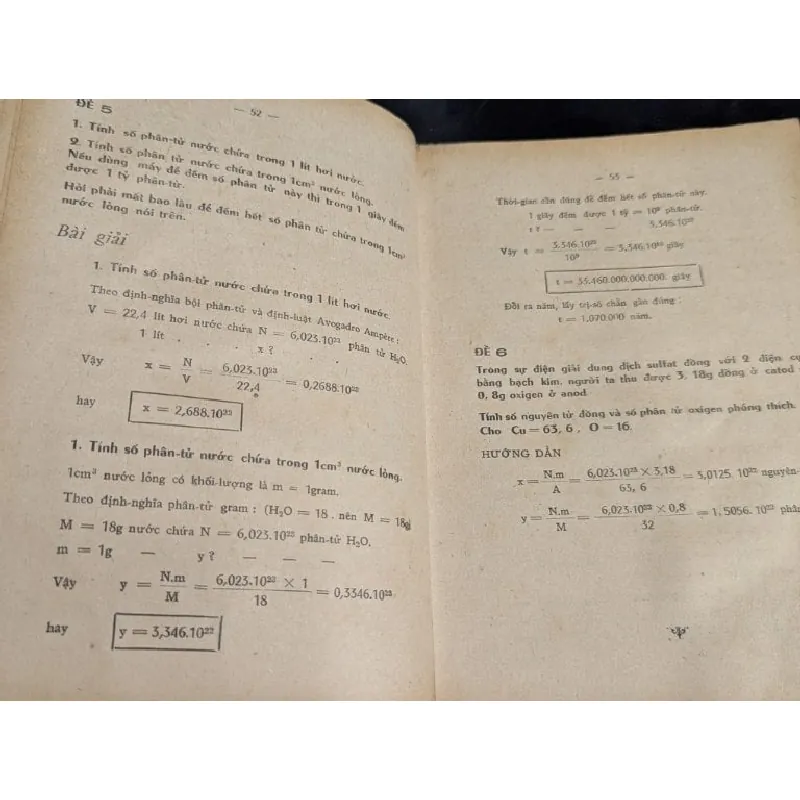 — 52 —
ĐỀ 5
1. Tính số phân-tử nước chứa trong 1 lít hơi nước.
2. Tính số phân tử nước chứa trong 1cm³ nước lỏng.
Nếu dùng máy để đếm số phân tử này thì trong 1 giây đếm
được 1 tỷ phân-tử.
Hỏi phải mất bao lâu để đếm hết số phân tử chứa trong 1cm³
nước lỏng nói trên.
Bài giải
1. Tính số phân-tử nước chứa trong 1 lít hơi nước.
Theo định-nghĩa bội phân-tử và định-luật Avogadro Ampère :
V = 22,4 lít hơi nước chứa N = 6,023.10²³ phân tử H₂O.
1 lít . . . x ? . . .
Vậy x = N/V = 6,023.10²³/22,4 = 0,2688.10²³
hay x = 2,688.10²²
1. Tính số phân-tử nước chứa trong 1cm³ nước lỏng.
1cm³ nước lỏng có khối-lượng là m = 1gram.
Theo định-nghĩa phân-tử gram : (H₂O = 18 . nên M = 18g)
M = 18g nước chứa N = 6,023.10²³ phân-tử H₂O.
m = 1g — y ? — — —
Vậy y = N.m/M = 6,023.10²³ × 1/18 = 0,3346.10²³
hay y = 3,346.10²²
— 53 —
Thời-gian cần dùng để đếm hết số phân-tử này.
1 giây đếm được 1 tỷ = 10⁹ phân-tử.
t ? — — — 3,346.10²²
Vậy t = 3,346.10²²/10⁹ = 3,346.10¹³ giây
t = 33.460.000.000.000. giây
Đổi ra năm, lấy trị-số chẵn gần đúng :
t = 1.070.000 năm.
ĐỀ 6
Trong sự điện giải dung dịch sulfat đồng với 2 điện
bằng bạch kim, người ta thu được 3, 18g đồng ở catod
0, 8g oxigen ở anod.
Tính số nguyên tử đồng và số phân tử oxigen phóng thích.
Cho Cu = 63, 6 , O = 16.
HƯỚNG DẪN
x = N.m/A = 6,023.10²³ × 3,18/63, 6 = 3,0125. 10²² nguyên-
y = N.m/M = 6,023.10²³ × 0,8/32 = 1,5056. 10²² phân